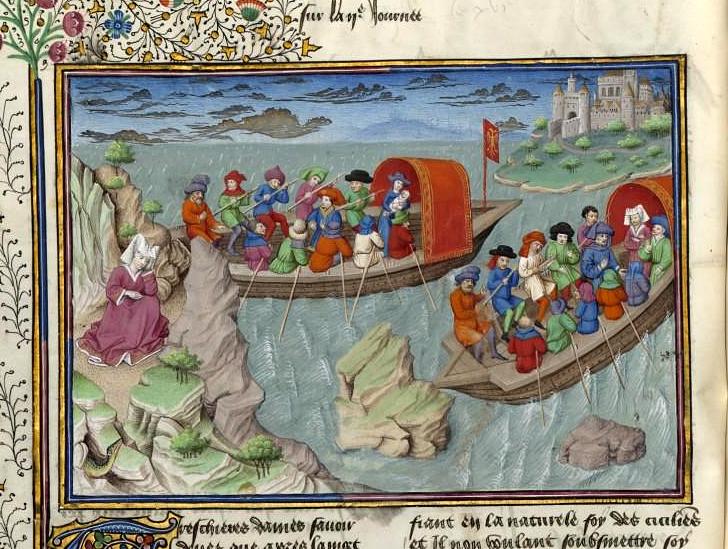 sur la iie Journee
Treschieres dames sauoir
deuez que apres la mort
fiant en la naturele foy des cicilies
et il non voulant soubsmettre soy